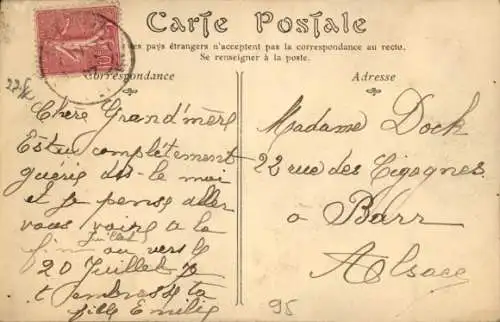 Carte Postale
des pays étrangers n'acceptent pas la correspondance au recto.
Se renseigner à la poste.
Correspondance
Chère Grand'mère
Es tu complètement
guérie dis-le moi
et je pense aller
vous voire a la
fin Juillet ou vers le
20 Juillet
t'embrasse ta
fille Emilie
Adresse
Madame Dock
22 rue des Cigognes
à Barr
Alsace
95